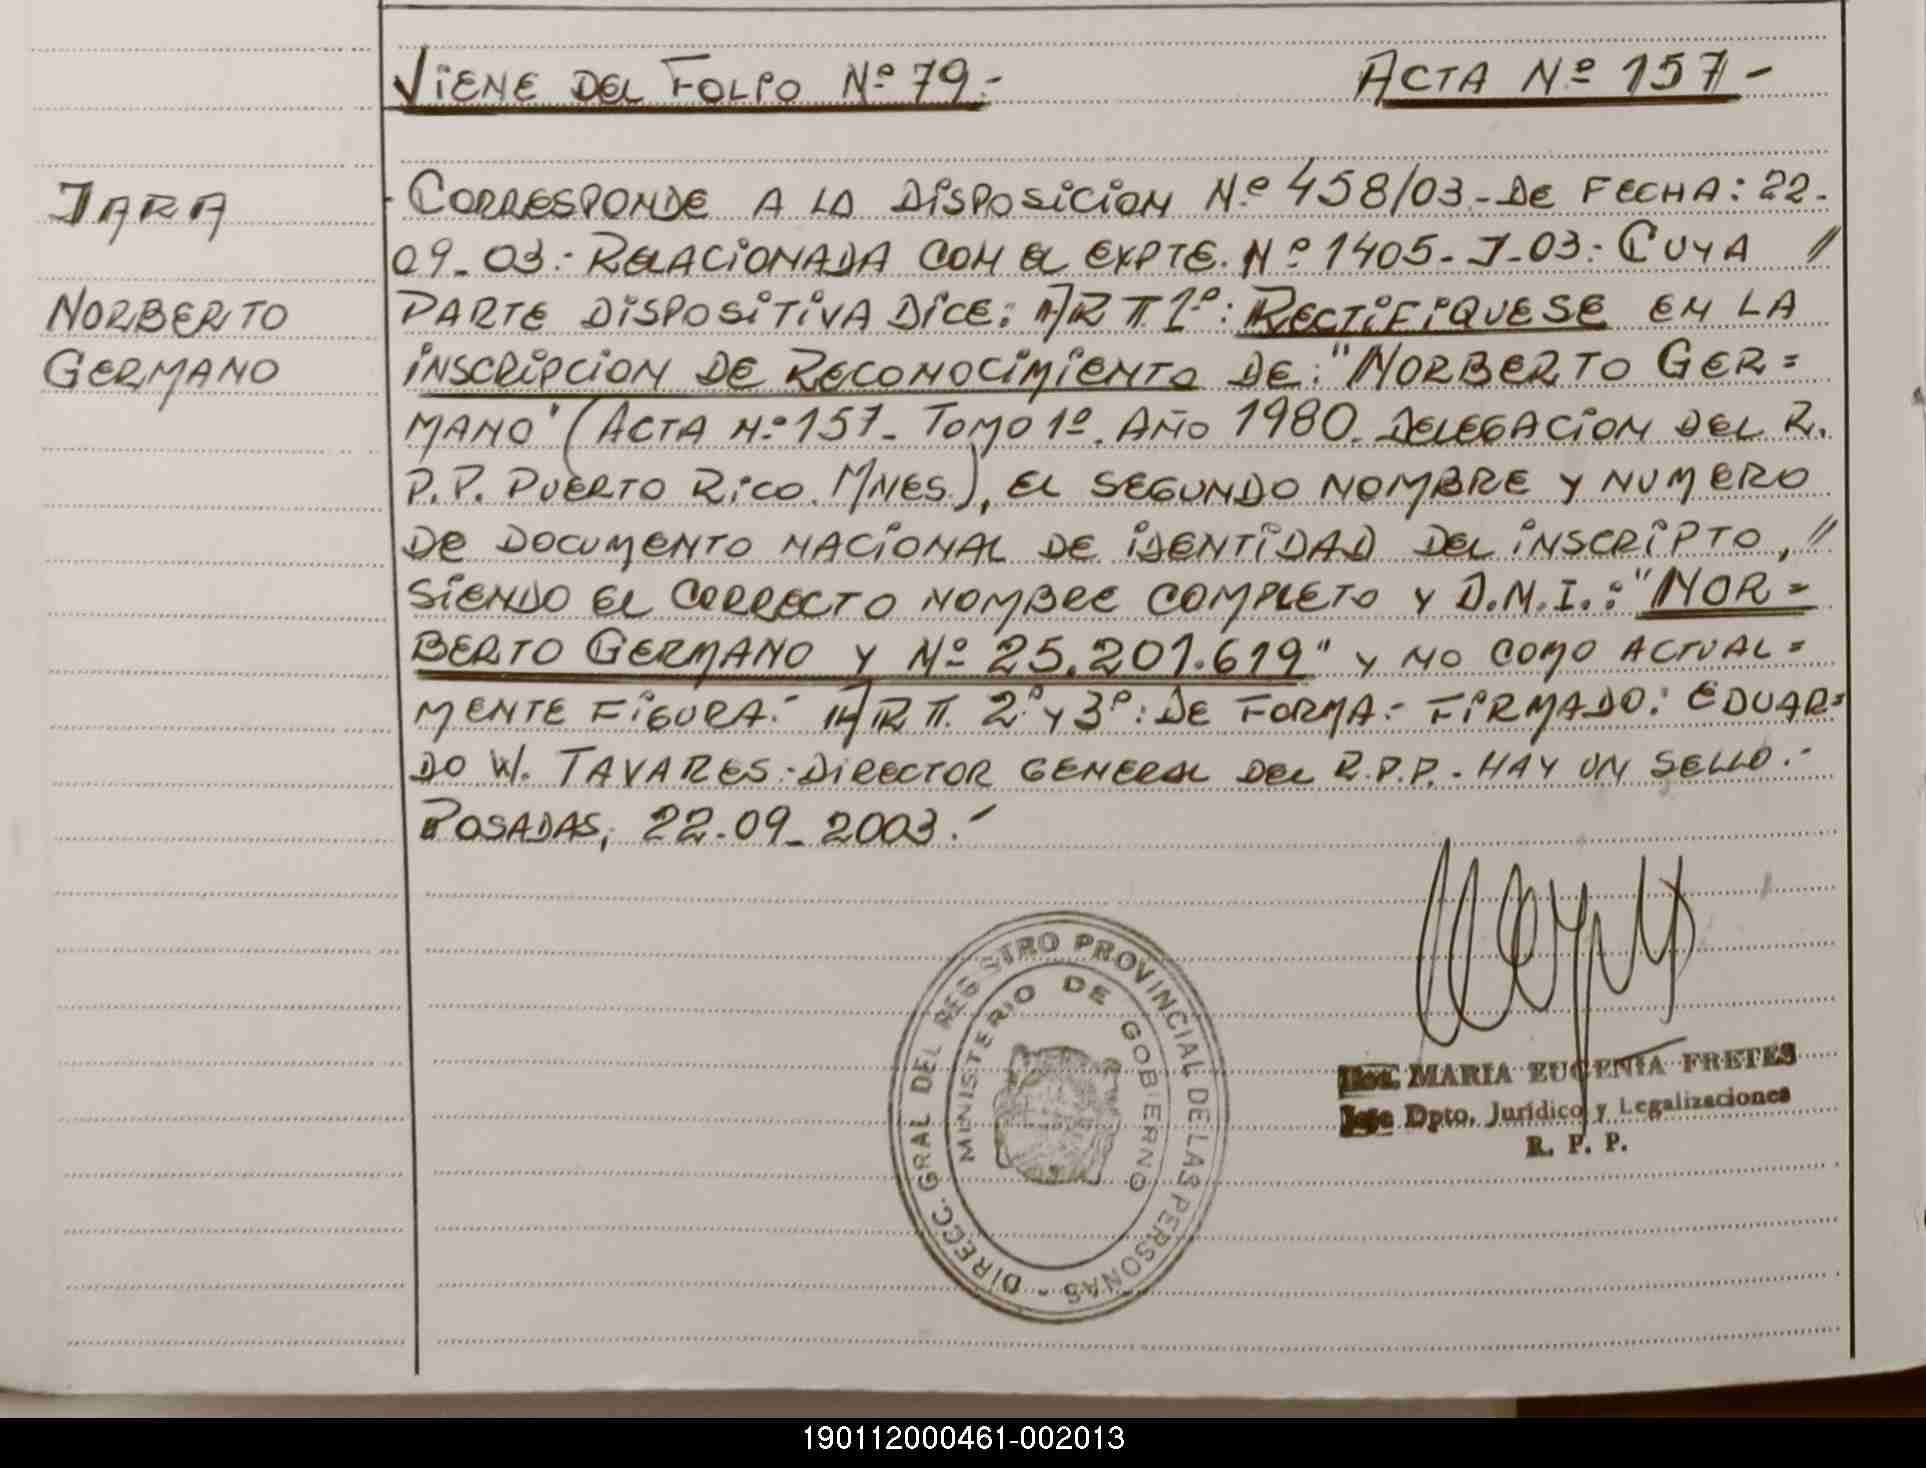 VIENE DEL FOLIO Nº 79.- ACTA Nº 157-
JARA
NORBERTO
GERMANO
CORRESPONDE A LA DISPOSICION Nº 458/03.- DE FECHA: 22-
09-03.- RELACIONADA CON EL EXPTE. Nº 1405-J-03: CUYA //
PARTE DISPOSITIVA DICE: ART. 1º: RECTIFIQUESE EN LA
INSCRIPCION DE RECONOCIMIENTO DE: "NORBERTO GER=
MANO" (ACTA Nº 157- TOMO 1º. AÑO 1980. DELEGACION DEL R.
P.P. PUERTO RICO. MNES.), EL SEGUNDO NOMBRE Y NUMERO
DE DOCUMENTO NACIONAL DE IDENTIDAD DEL INSCRIPTO, //
SIENDO EL CORRECTO NOMBRE COMPLETO Y D.N.I.: "NOR=
BERTO GERMANO Y Nº 25.201.619" Y NO COMO ACTUAL=
MENTE FIGURA.- ART. 2º Y 3º: DE FORMA.- FIRMADO: EDUAR=
DO W. TAVARES.- DIRECTOR GENERAL DEL R.P.P.- HAY UN SELLO.-
POSADAS, 22-09-2003.-
DIRECC. GRAL DEL REGISTRO PROVINCIAL DE LAS PERSONAS -
MINISTERIO DE GOBIERNO
MARIA EUGENIA FRETES
Jefe Dpto. Jurídico y Legalizaciones
R. P. P.
190112000461-002013